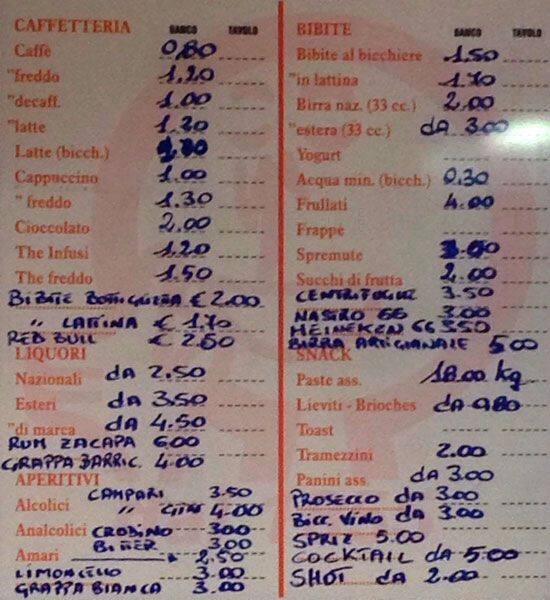 CAFFETTERIA BANCO TAVOLO
Caffè 0,80
"freddo 1.20
"decaff. 1.00
"latte 1.20
Latte (bicch.)
Cappuccino 1.00
" freddo 1.30
Cioccolato 2.00
The Infusi 1.20
The freddo 1.50
BIBITE BOTTIGLIETTA € 2.00
" LATTINA € 1.70
RED BULL € 2.50
LIQUORI
Nazionali da 2.50
Esteri da 3.50
"di marca da 4.50
RUM ZACAPA 6.00
GRAPPA BARRIC. 4.00
APERITIVI
CAMPARI 3.50
Alcolici " GIN 4.00
Analcolici CRODINO 3.00
BITTER 3.00
Amari 2.50
LIMONCELLO 3.00
GRAPPA BIANCA 3.00
BIBITE BANCO TAVOLO
Bibite al bicchiere 1.50
"in lattina 1.70
Birra naz. (33 cc.) 2.00
"estera (33 cc.) da 3.00
Yogurt
Acqua min. (bicch.) 0.30
Frullati 4.00
Frappè
Spremute
Succhi di frutta 2.00
CENTRIFUGHE 3.50
NASTRO 66 3.00
HEINEKEN 66 3.50
BIRRA ARTIGIANALE 5.00
SNACK
Paste ass. 18.00 Kg
Lieviti - Brioches da 0.80
Toast
Tramezzini 2.00
Panini ass. da 3.00
PROSECCO da 3.00
BICC. VINO da 3.00
SPRIZ 5.00
COCKTAIL da 5.00
SHOT da 2.00